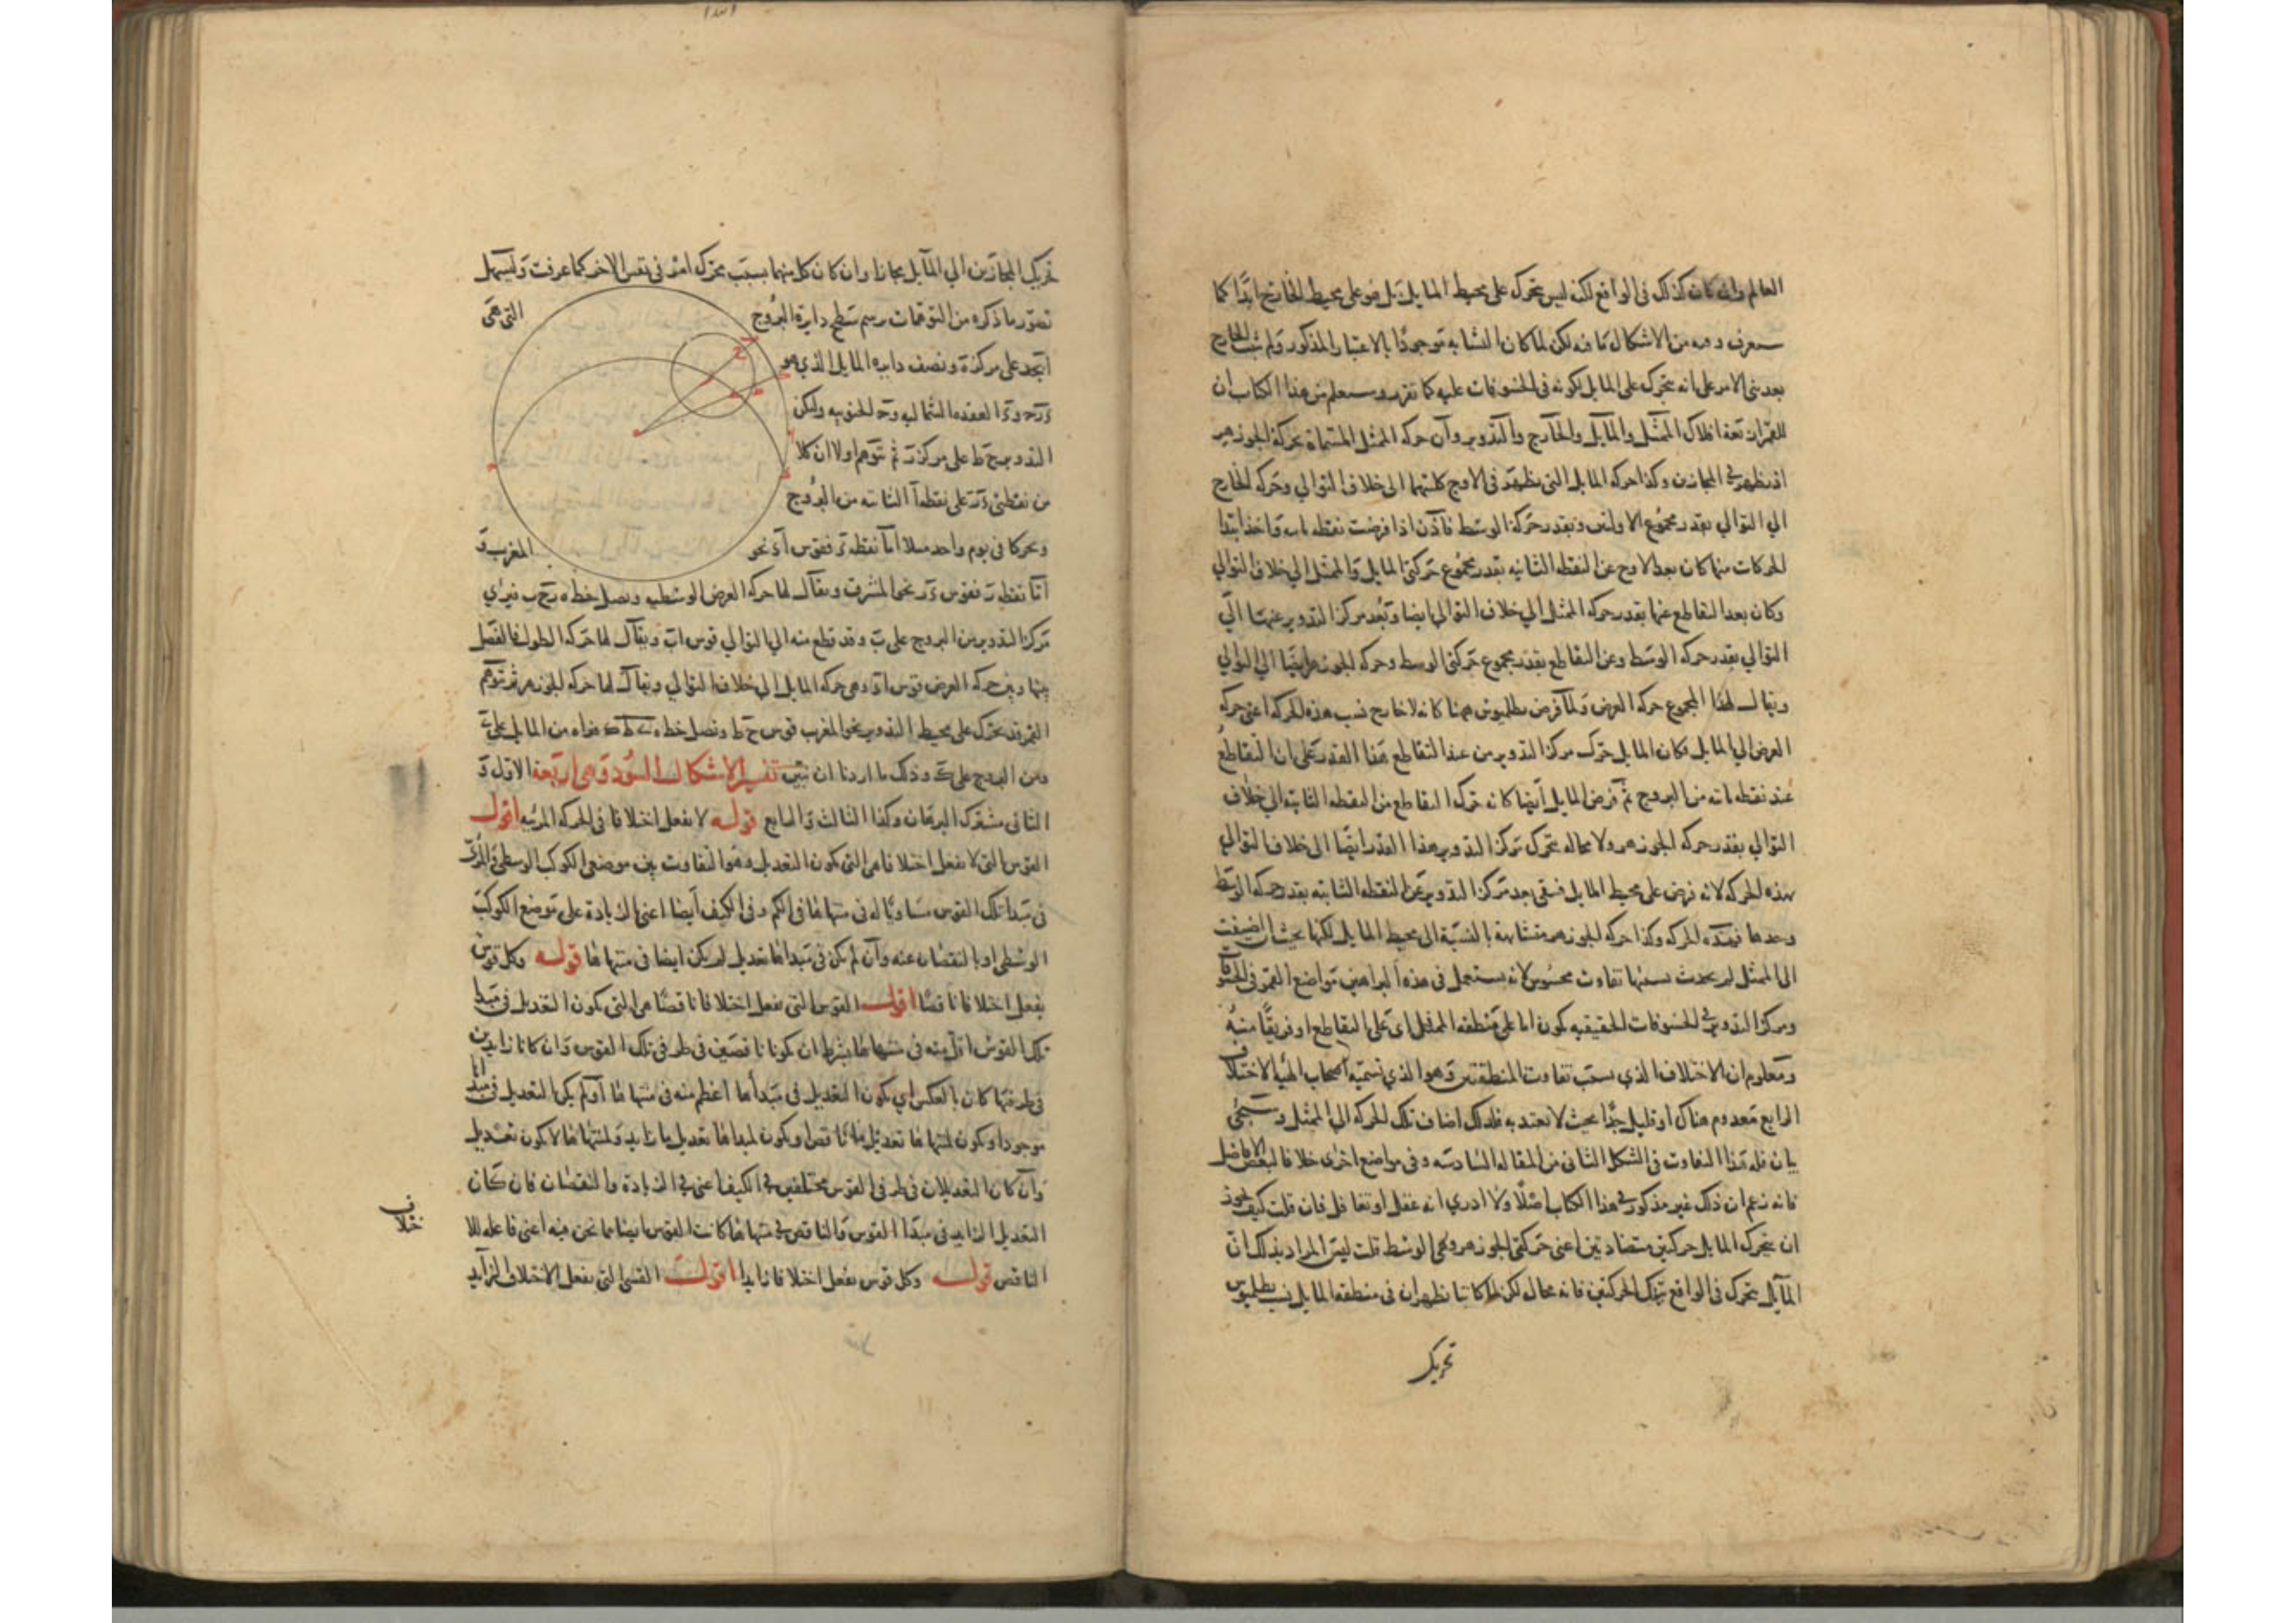 العالم وان كان كذلك في الواقع لكنه ليس يتحرك على محيط المايل بل هو على محيط الخارج ابدا كما
من الاشكال لكن لما كان التشابه موجودا بالاعتبار المذكور ولم
بعد بنى الامر على انه يتحرك على المايل لكونه في الخسوفات عليه كما تقرر وستعلم من هذا الكتاب ان
للقمر اربعة افلاك الممثل والمايل والخارج والتدوير وان حركة الممثل المسماة بحركة الجوزهر
اذ تظهر في المجازين وكذا حركة المايل التي تظهر في الاوج كلتيهما الى خلاف التوالي وحركة الخارج
الي التوالي بقدر مجموع الاوليين وبقدر حركة الوسط فاذن اذا فرضت نقطة ثابتة واخذ ابتدا
الحركات منها كان بعد الاوج عن النقطة الثانيه بقدر مجموع حركتي المايل والممثل الي خلاف التوالي
وكان بعد التقاطع عنها بقدر حركة الممثل الي خلاف التوالي ايضا وبعد مركز التدوير عنها الي
التوالي بقدر حركة الوسط وعن التقاطع بقدر مجموع حركتي الوسط وحركة الجوزهر ايضا الي التوالي
ويقال لهذا المجموع حركة العرض ولما فرض بطلميوس ههنا كانه لا خارج نسب هذه الحركة اعني حركة
العرض الي المايل فكان المايل حرك مركز التدوير من عند التقاطع هذا القدر على ان التقاطع
عند نقطة ثابته من البروج ثم فرض المايل ايضا كانه حرك التقاطع من النقطة الثابتة الي خلاف
التوالي بقدر حركة الجوزهر ولا محالة يتحرك مركز التدوير هذا القدر ايضا الى خلاف التوالي
بهذه الحركة لانه فرض على محيط المايل فبقي بعد مركز التدوير عن النقطة الثابته بقدر حركة الوسط
وحدها فهذه الحركة وكذا حركة الجوزهر متشابهة بالنسبة الى محيط المايل لكنها بحيث ان اضيفت
الى الممثل لم يحدث بسببها تفاوت محسوس لانه يستعمل في هذه البراهين مواضع القمر في الخسوفات
ومركز التدوير في الخسوفات الحقيقيه يكون اما على منطقة الممثل اي على التقاطع او قريبا منه
ومعلوم ان الاختلاف الذي بسبب تفاوت المنطقتين وهو الذي تسميه اصحاب الهيأة الاختلاف
الرابع معدوم هناك او قليل جدا بحيث لا يعتد به فلذلك اضاف تلك الحركة الي الممثل وسيجئ
بيان قلة هذا التفاوت في الشكل الثاني من المقالة السادسة وفي مواضع اخرى خلافا لبعض الافاضل
فانه زعم ان ذلك غير مذكور في هذا الكتاب اصلا ولا ادري انه غفل او تغافل فان قلت كيف يجوز
ان يتحرك المايل حركتين متضادتين اعني حركتي الجوزهر والوسط قلت ليس المراد بذلك ان
المايل يتحرك في الواقع بتلك الحركتين فانه محال لكن لما كانتا تظهران في منطقة المايل نسب بطلميوس
تحريك
تحريك المجازين الي المايل مجازا وان كان كل منهما بسبب تحرك امر في نفس الاخر كما عرفت وليسهل
تصور ما ذكره من التوهمات رسم سطح دايرة البروج التي هي
ابجد على مركز ه ونصف دايره المايل الذي هو
العقده الشماليه و الجنوبيه وليكن
التدوير ح ط على مركز ثم توهم اولا ان كلا
من نقطتي على نقطة ا الثابته من البروج
وتحركا في يوم واحد مثلا اما نقطه فقوس نحو المغرب و
اما نقطه فقوس نحو المشرق ويقال لها حركة العرض الوسطيه ونصل خط فيرى
مركز التدوير من البروج على ب وقد قطع منه الي التوالي قوس اب ويقال لها حركة الطول فالفضل
بينها وبين حركة العرض قوس وهي حركة المايل الى خلاف التوالي ويقال لها حركة الجوزهر ثم توهم
القمر قد تحرك على محيط التدوير نحو المغرب قوس ح ط ونصل خط فنراه من المايل على
ومن البروج على وذلك ما اردنا ان نبين تفسير الاشكال السود وهي اربعة الاول و
الثاني مشترك البرهان وكذا الثالث والرابع قوله لا يفعل اختلافا في الحركة المرئيه اقول
القوس التي لا يفعل اختلافا هي التي يكون التعديل وهو التفاوت بين موضعي الكوكب الوسطي والمرئي
في مبدا تلك القوس مساويا له في منتهاها في الكم وفي الكيف ايضا اعني الزيادة على موضع الكوكب
الوسطي او بالنقصان عنه وان لم يكن في مبداها تعديل لم يكن ايضا في منتهاها قوله وكل قوس
يفعل اختلافا ناقصا اقول القوس التي يفعل اختلافا ناقصا هي التي يكون التعديل في مبدا
تلك القوس اقل منه في منتهاها بشرط ان يكونا ناقصين في طرفي تلك القوس وان كانا زايدين
في طرفيها كان بالعكس اي يكون التعديل في مبدأها اعظم منه في منتهاها او لم يكن التعديل في مبداها
موجودا ويكون لمنتهاها تعديل ما ناقص او يكون لمبداها تعديل ما زايد ولمنتهاها لا يكون تعديل
وان كان التعديلان في طرفي القوس مختلفين في الكيف اعني في الزيادة والنقصان فان كان
التعديل الزايد في مبدا القوس والناقص في منتهاها كانت القوس ايضا مما نحن فيه اعني فاعلة للا
ختلاف
الناقص قوله وكل قوس يفعل اختلافا زايدا اقول القسي التي يفعل الاختلاف الزايد